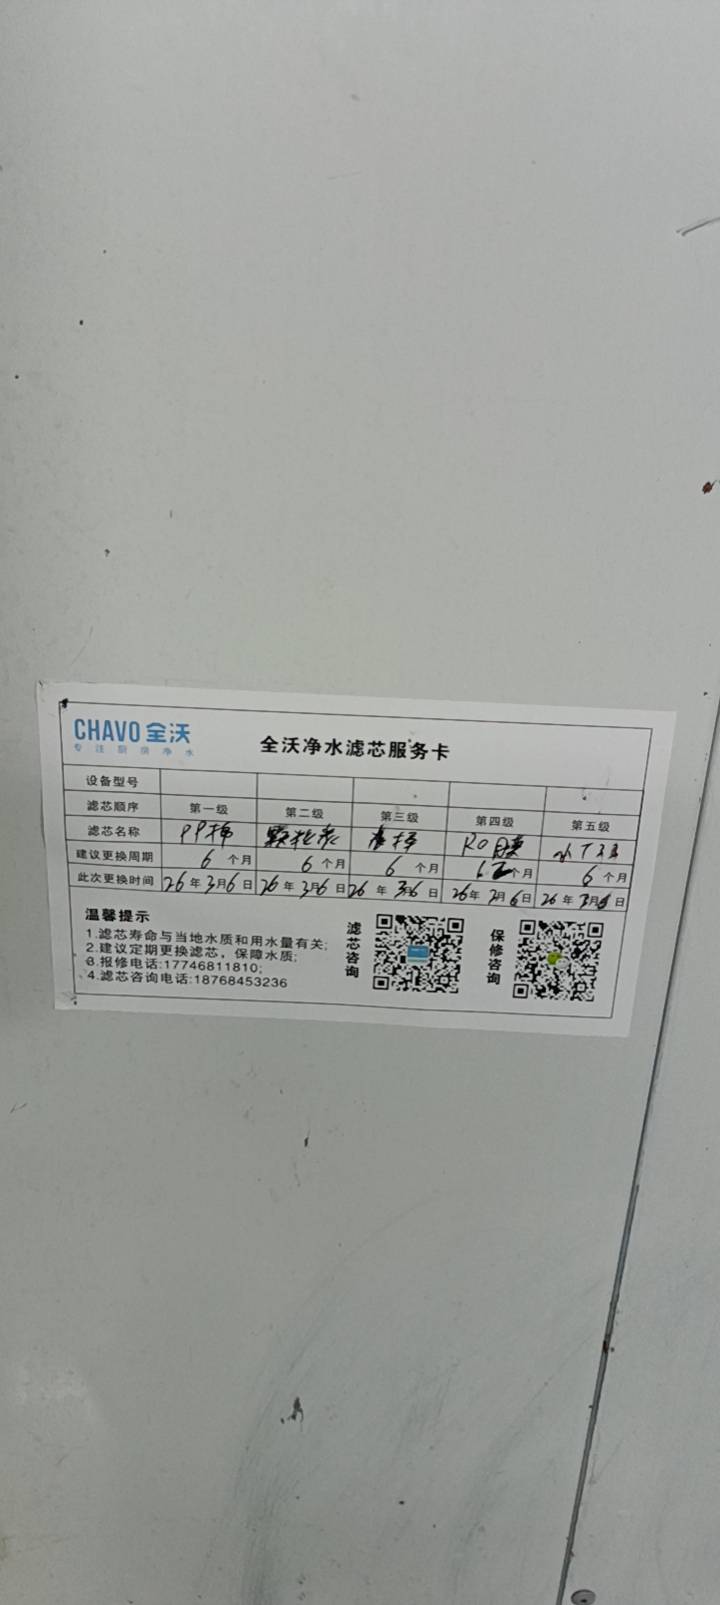 CHAVO 全沃
专注厨房净水
全沃净水滤芯服务卡
设备型号
滤芯顺序 第一级 第二级 第三级 第四级 第五级
滤芯名称 PP棉 颗粒炭 RO膜
建议更换周期 6个月 6个月 6个月 个月 6个月
此次更换时间 26年3月6日 26年3月6日 26年3月6日 26年3月6日 26年3月6日
温馨提示
1.滤芯寿命与当地水质和用水量有关;
2.建议定期更换滤芯，保障水质;
3.报修电话:17746811810;
4.滤芯咨询电话:18768453236
滤芯咨询
保修咨询